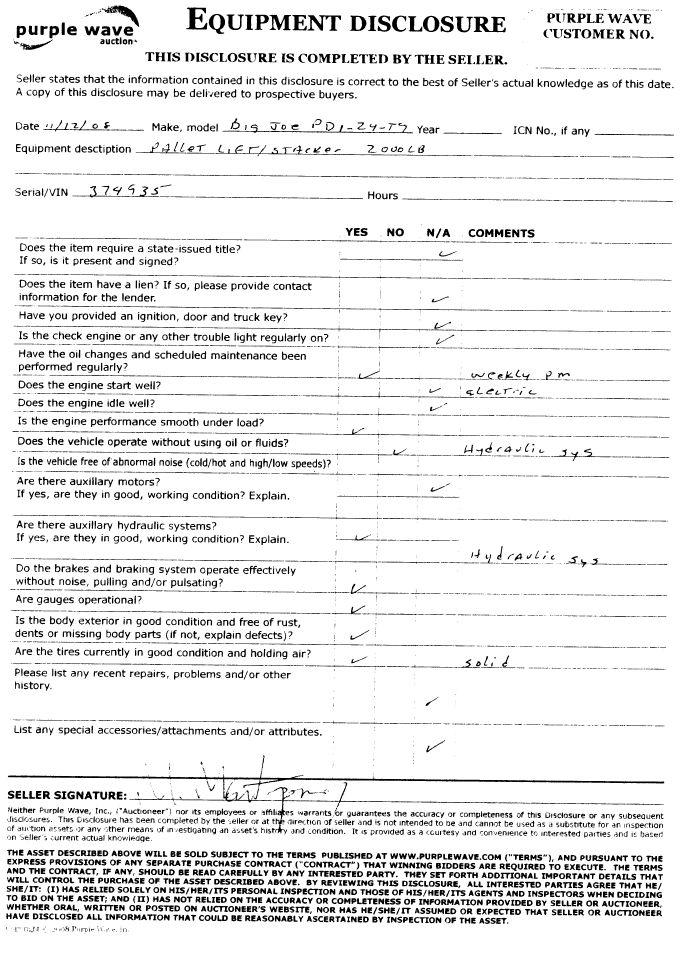 purple wave
auction
EQUIPMENT DISCLOSURE
PURPLE WAVE
CUSTOMER NO.
THIS DISCLOSURE IS COMPLETED BY THE SELLER.
Seller states that the information contained in this disclosure is correct to the best of Seller's actual knowledge as of this date.
A copy of this disclosure may be delivered to prospective buyers.
Date 11/12/08 Make, model Big Joe PD1-24-T9 Year ICN No., if any
Equipment desctiption PALLET LIFT/STACKER 2000LB
Serial/VIN 374935 Hours
YES NO N/A COMMENTS
Does the item require a state-issued title? ✓
If so, is it present and signed?
Does the item have a lien? If so, please provide contact
information for the lender. ✓
Have you provided an ignition, door and truck key? ✓
Is the check engine or any other trouble light regularly on? ✓
Have the oil changes and scheduled maintenance been
performed regularly? ✓ weekly pm
Does the engine start well? ✓ electric
Does the engine idle well? ✓
Is the engine performance smooth under load? ✓
Does the vehicle operate without using oil or fluids? ✓ Hydraulic sys
Is the vehicle free of abnormal noise (cold/hot and high/low speeds)?
Are there auxillary motors? ✓
If yes, are they in good, working condition? Explain.
Are there auxillary hydraulic systems?
If yes, are they in good, working condition? Explain. ✓ Hydraulic sys
Do the brakes and braking system operate effectively
without noise, pulling and/or pulsating? ✓
Are gauges operational? ✓
Is the body exterior in good condition and free of rust,
dents or missing body parts (if not, explain defects)? ✓
Are the tires currently in good condition and holding air? ✓ solid
Please list any recent repairs, problems and/or other
history. ✓
List any special accessories/attachments and/or attributes. ✓
SELLER SIGNATURE:
Neither Purple Wave, Inc., ("Auctioneer") nor its employees or affiliates warrants or guarantees the accuracy or completeness of this Disclosure or any subsequent
disclosures. This Disclosure has been completed by the seller or at the direction of seller and is not intended to and cannot be used as a substitute for an inspection
of auction assets or any other means of investigating an asset's history and condition. It is provided as a courtesy and convenience to interested parties and is based
on Seller's current actual knowledge.
THE ASSET DESCRIBED ABOVE WILL BE SOLD SUBJECT TO THE TERMS PUBLISHED AT WWW.PURPLEWAVE.COM ("TERMS"), AND PURSUANT TO THE
EXPRESS PROVISIONS OF ANY SEPARATE PURCHASE CONTRACT ("CONTRACT") THAT WINNING BIDDERS ARE REQUIRED TO EXECUTE. THE TERMS
AND THE CONTRACT, IF ANY, SHOULD BE READ CAREFULLY BY ANY INTERESTED PARTY. THEY SET FORTH ADDITIONAL IMPORTANT DETAILS THAT
WILL CONTROL THE PURCHASE OF THE ASSET DESCRIBED ABOVE. BY REVIEWING THIS DISCLOSURE, ALL INTERESTED PARTIES AGREE THAT HE/
SHE/IT: (I) HAS RELIED SOLELY ON HIS/HER/ITS PERSONAL INSPECTION AND THOSE OF HIS/HER/ITS AGENTS AND INSPECTORS WHEN DECIDING
TO BID ON THE ASSET; AND (II) HAS NOT RELIED ON THE ACCURACY OR COMPLETENESS OF INFORMATION PROVIDED BY SELLER OR AUCTIONEER,
WHETHER ORAL, WRITTEN OR POSTED ON AUCTIONEER'S WEBSITE, NOR HAS HE/SHE/IT ASSUMED OR EXPECTED THAT SELLER OR AUCTIONEER
HAVE DISCLOSED ALL INFORMATION THAT COULD BE REASONABLY ASCERTAINED BY INSPECTION OF THE ASSET.
Copyright © 2008 Purple Wave, Inc.